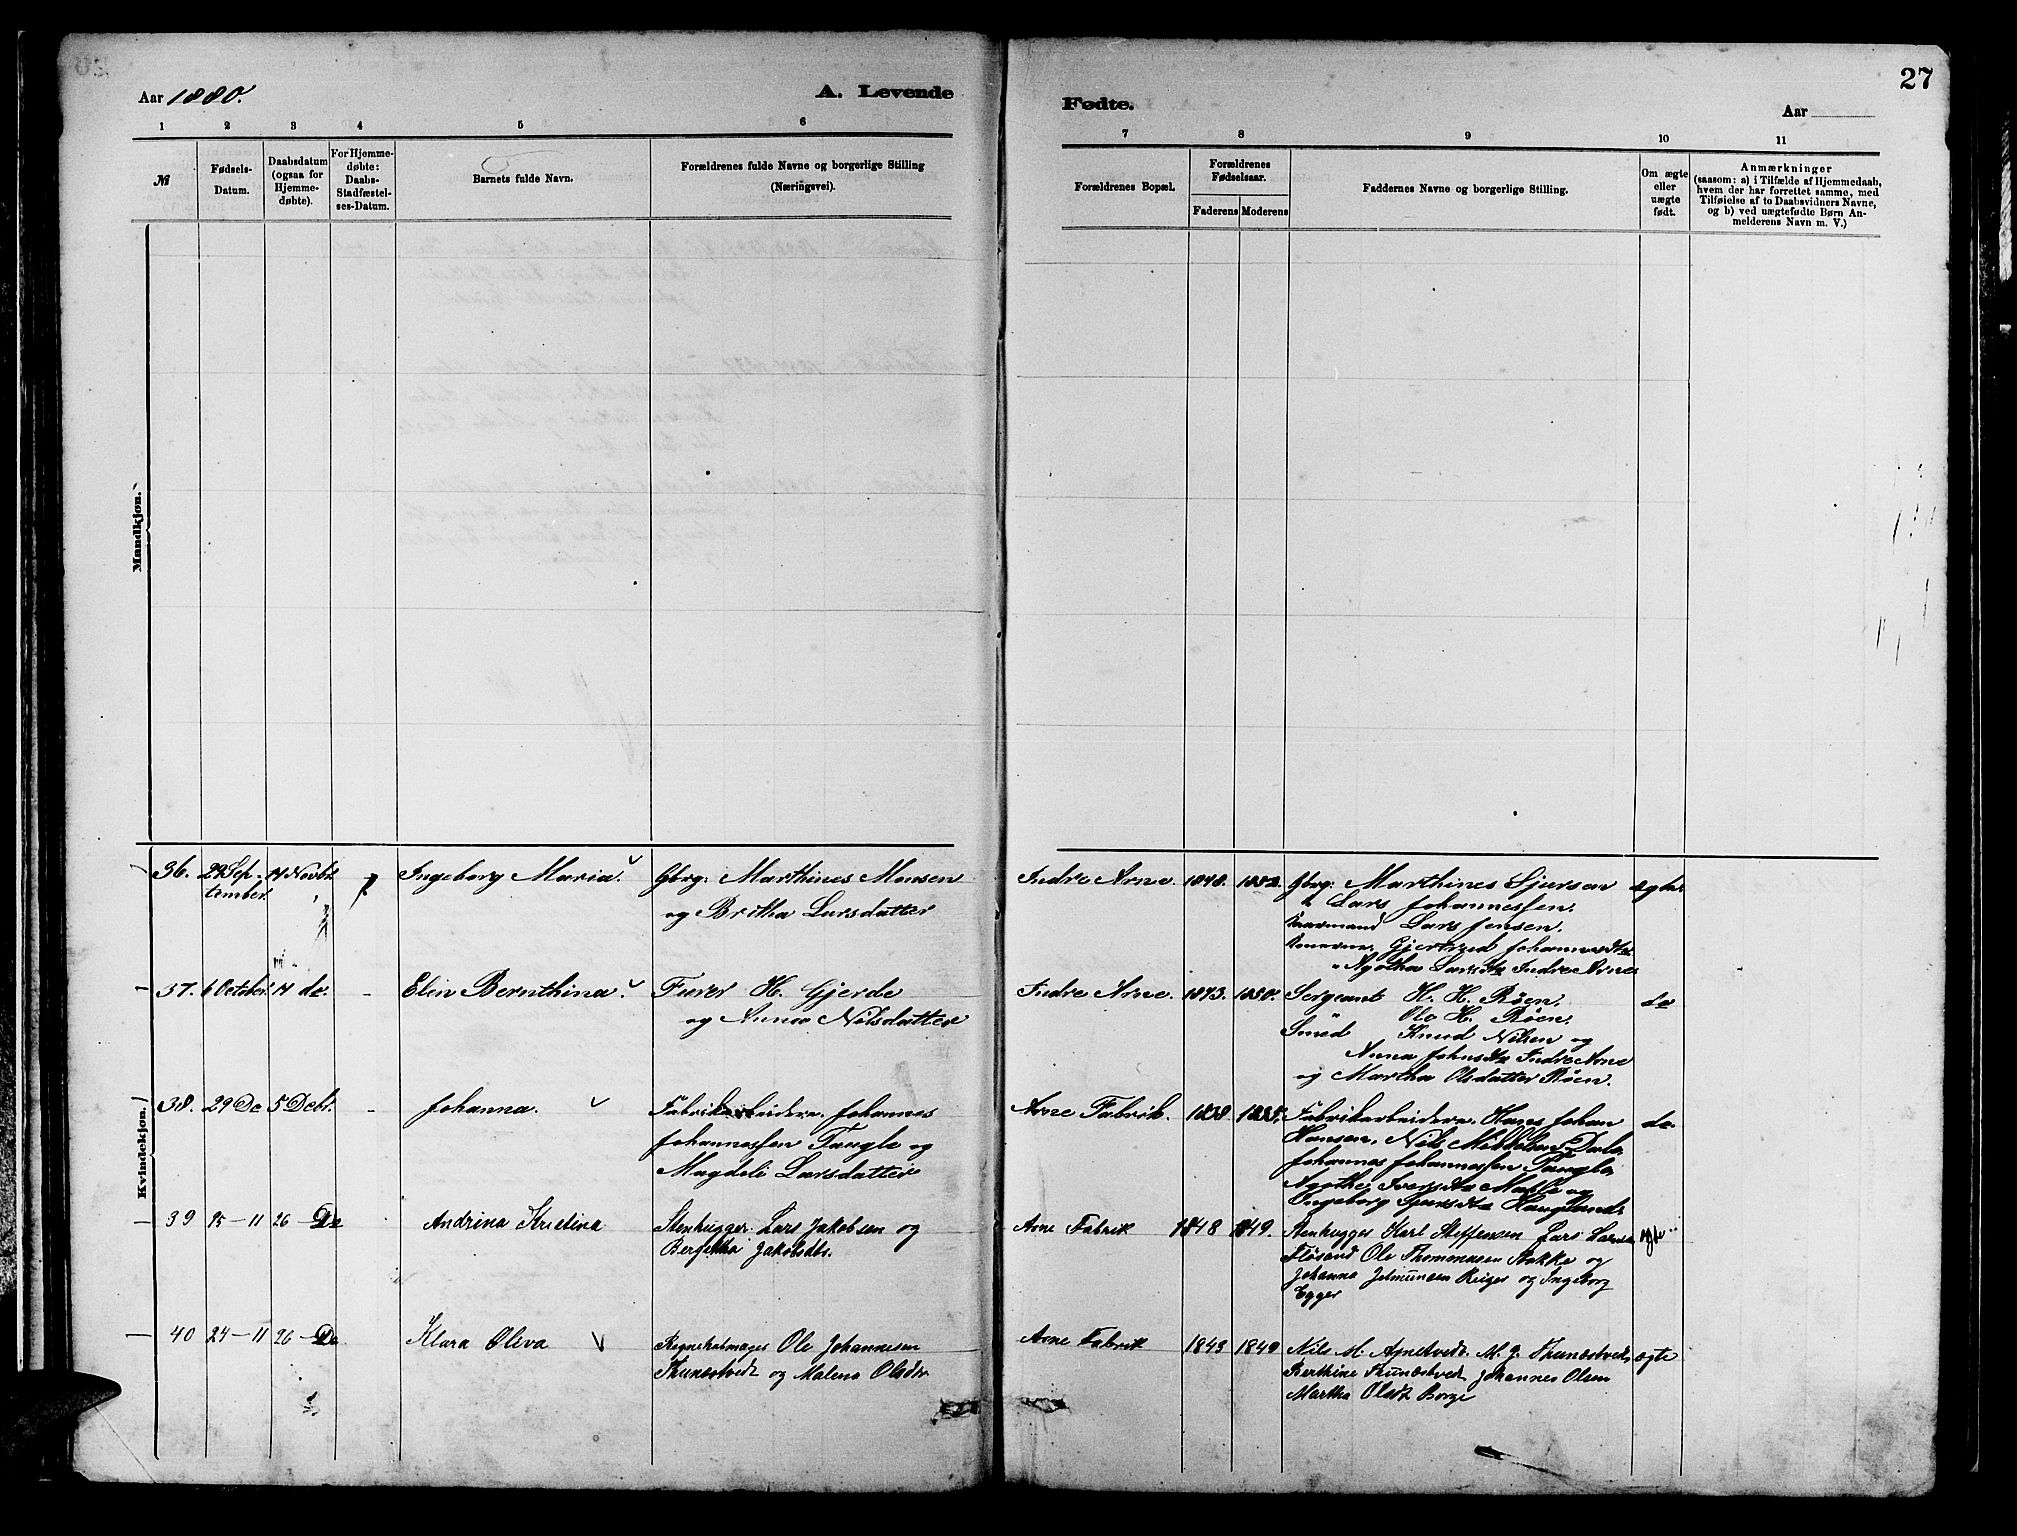 27
Aar 1880.
A. Levende
Fødte.
Aar
1 2 3 4 5 6 7 8 9 10 11
№
Fødsels-
Datum.
Daabsdatum
(ogsaa for
Hjemme-
døbte).
For Hjemme-
døbte:
Daabs-
Stadfæstel-
ses-Datum.
Barnets fulde Navn.
Forældrenes fulde Navne og borgerlige Stilling
(Næringsvei).
Forældrenes Bopæl.
Forældrenes
Fødselsaar.
Faderens Moderens
Faddernes Navne og borgerlige Stilling.
Om ægte
eller
uægte
født.
Anmærkninger
(saasom: a) i Tilfælde af Hjemmedaab,
hvem der har forrettet samme, med
Tilføielse af to Daabsvidners Navne,
og b) ved uægtefødte Børn An-
melderens Navn m. V.)
Mandkjøn.
Kvindekjøn.
36. 29 Sep- 14 Novbr Ingeborg Maria. Gbrg. Marthines Monsen
tember og Britha Larsdatter
Indre Arne. 1848. Gbrg. Marthines Sjursen ægte
Lars Johannessen.
Lars Jensen.
Gjertrud Johannesdtr
Agatha Larsdtr Indre Arne
37. 6 October 14 do. - Elin Bernthina. H. Gjerde
og Anna Nilsdatter
Indre Arne. 1843. 1850. Sergeant H. H. Röen. do
Ole H. Röen.
Smed Knud Nilsen og
Anna Johnsdtr Indre Arne
og Martha Olsdatter Röen.
38. 29 Do 5 Debr. - Johanna. Fabrikarbeider. Johannes
Johannessen Tangle og
Magdeli Larsdatter
Arne Fabrik. 1838 Fabrikarbeidere. Hans Johan do.
Hansen, Nils
Johannes Johannessen
Agathe Iversdtr og
Ingeborg Sjursdtr Hauglands
39 15-11 26 - Do Andrina Kristina Stenhugger. Lars Jakobsen og
Jakobsdtr.
Arne Fabrik 1848 1849. Stenhugger Karl Steffensen Lars Larsen ægte
Flösand Ole Thommasen Stokke og
Johanna og Ingeborg
Egger
40 24-11 26 - Do Klara Oliva Ole Johannesen
Thunestvedt og Malena Olsdtr
Arne Fabrik 1843 1849 Nils M. M. J. Thunestvedt ægte
Berthine Thunestvedt Johannes Olsen
Martha Olsdt Borge